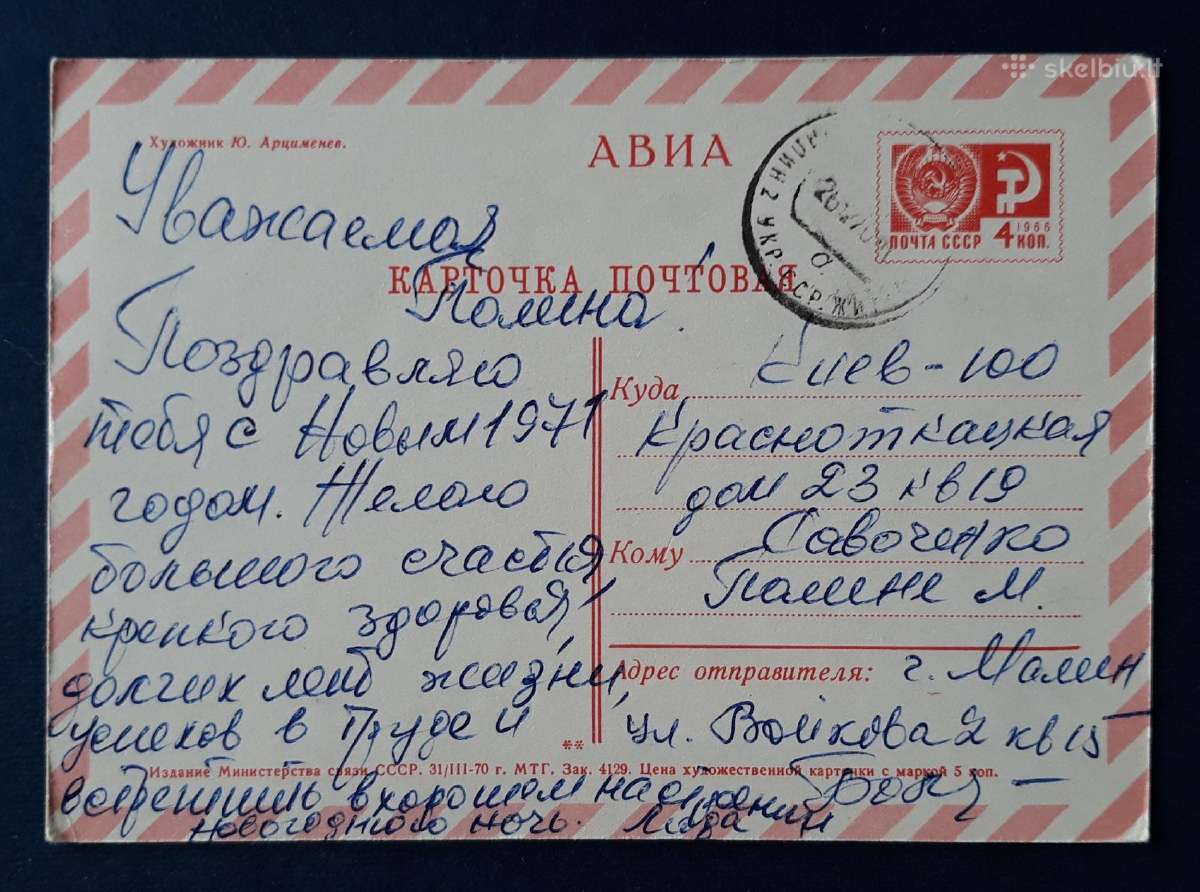 skelbiu.lt
Художник Ю. Арцименев.
АВИА
ПОЧТА СССР
1966
4 КОП.
УКР. ССР
КАРТОЧКА ПОЧТОВАЯ
Уважаемая
Полина!
Поздравляю
тебя с Новым 1971
годом. Желаю
большого счастья,
крепкого здоровья,
долгих лет жизни,
успехов в труде и
встретить в хорошем
новогоднюю ночь. Лида
Куда Киев-100
Краснοткацкая
дом 23 кв 19
Кому Савоченко
Полине М.
Адрес отправителя: г. Малин
ул. Войкова 2 кв 15
**
Издание Министерства связи СССР. 31/III-70 г. МТГ. Зак. 4129. Цена художественной карточки с маркой 5 коп.